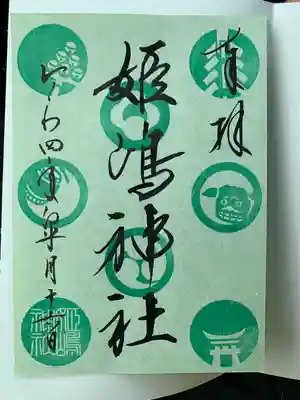 奉拝
姫嶋神社
令和四年皐月十日
姫嶋神社